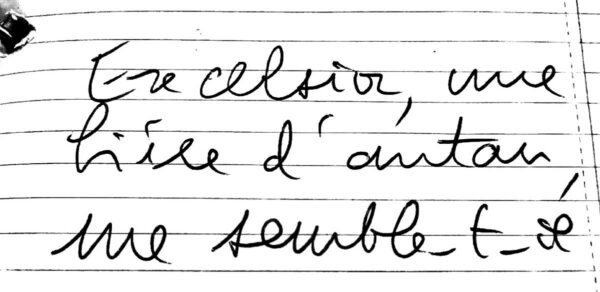 Excelsior, une
bière d'antan,
me semble-t-il